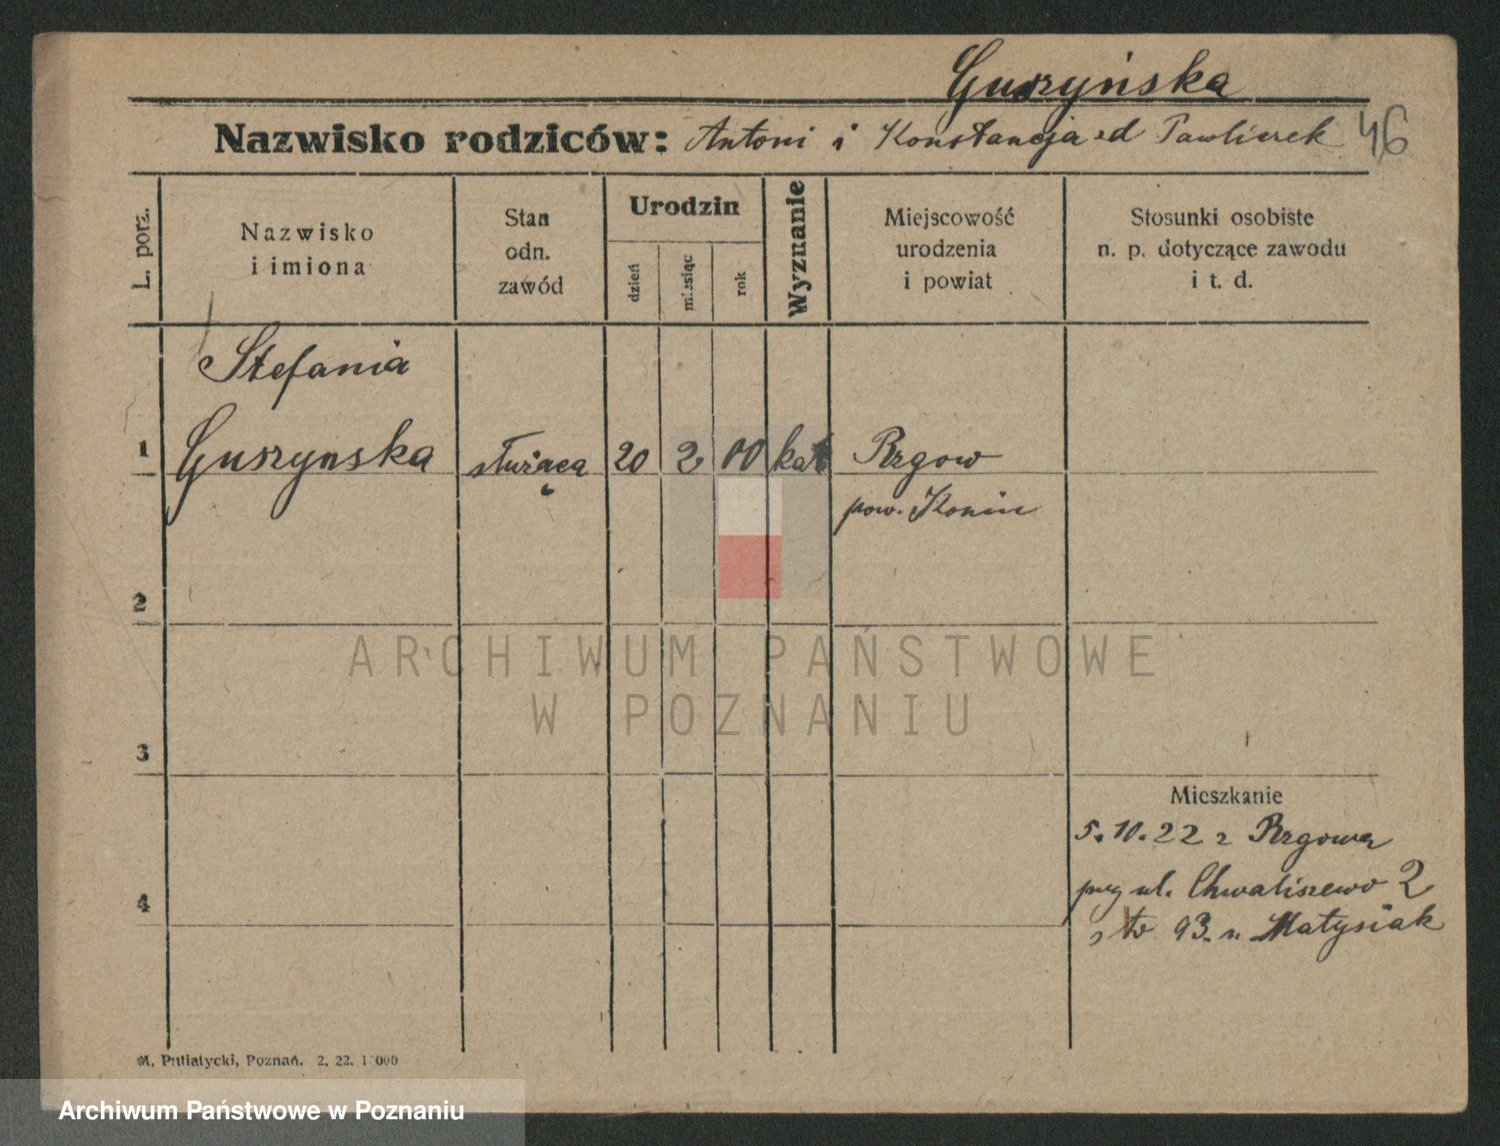 Guszyńska
Nazwisko rodziców: Antoni i Konstancja 46
L. porz.
Nazwisko
i imiona
Stan
odn.
zawód
Urodzin
dzień
miesiąc
rok
Wyznanie
Miejscowość
urodzenia
i powiat
Stosunki osobiste
n. p. dotyczące zawodu
i t. d.
Stefania
1 Guszynska służąca 20 2 00 kat Rzgow
pow. Konin
2
3
4
Mieszkanie
5.10.22 z Rzgowa
ul. Chwaliszewo 2
93. Matysiak
M. Putiatycki, Poznań. 2. 22.
ARCHIWUM PAŃSTWOWE
W POZNANIU
Archiwum Państwowe w Poznaniu